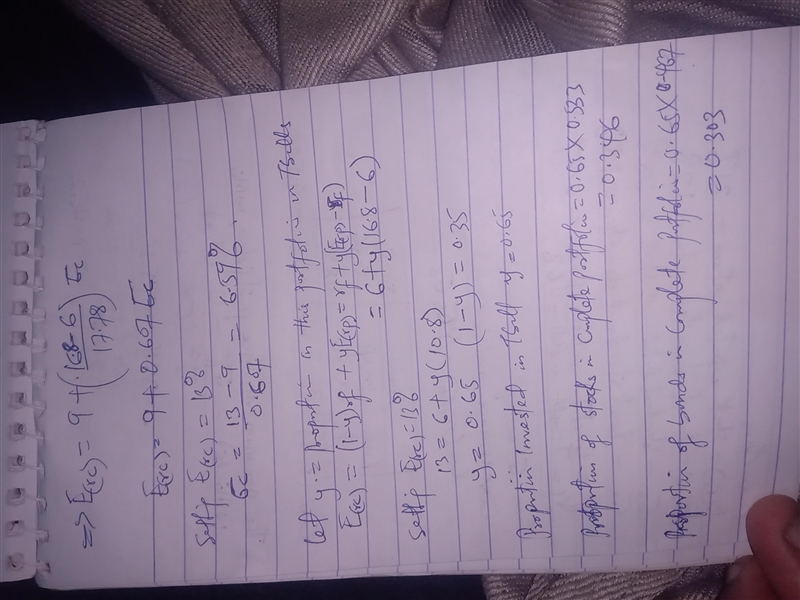 => E(rc) = 9 + (16.8-6 / 17.78) σc
E(rc) = 9 + 0.607 σc
Setting E(rc) = 13%
σc = 13-9 / 0.607 = 6.59%.
let y = proportion in this portfolio in Tbills
E(rc) = (1-y)rf + yE(rp) = rf + y(E(rp)-rf)
= 6+y(16.8-6)
Setting E(rc) = 13%
13 = 6+y(10.8)
y = 0.65 (1-y) = 0.35
Proportion Invested in Tbill y = 0.65
Proportion of stocks in complete portfolio = 0.65 X 0.533
= 0.346
Proportion of bonds in complete portfolio = 0.65 X 0.467
= 0.303